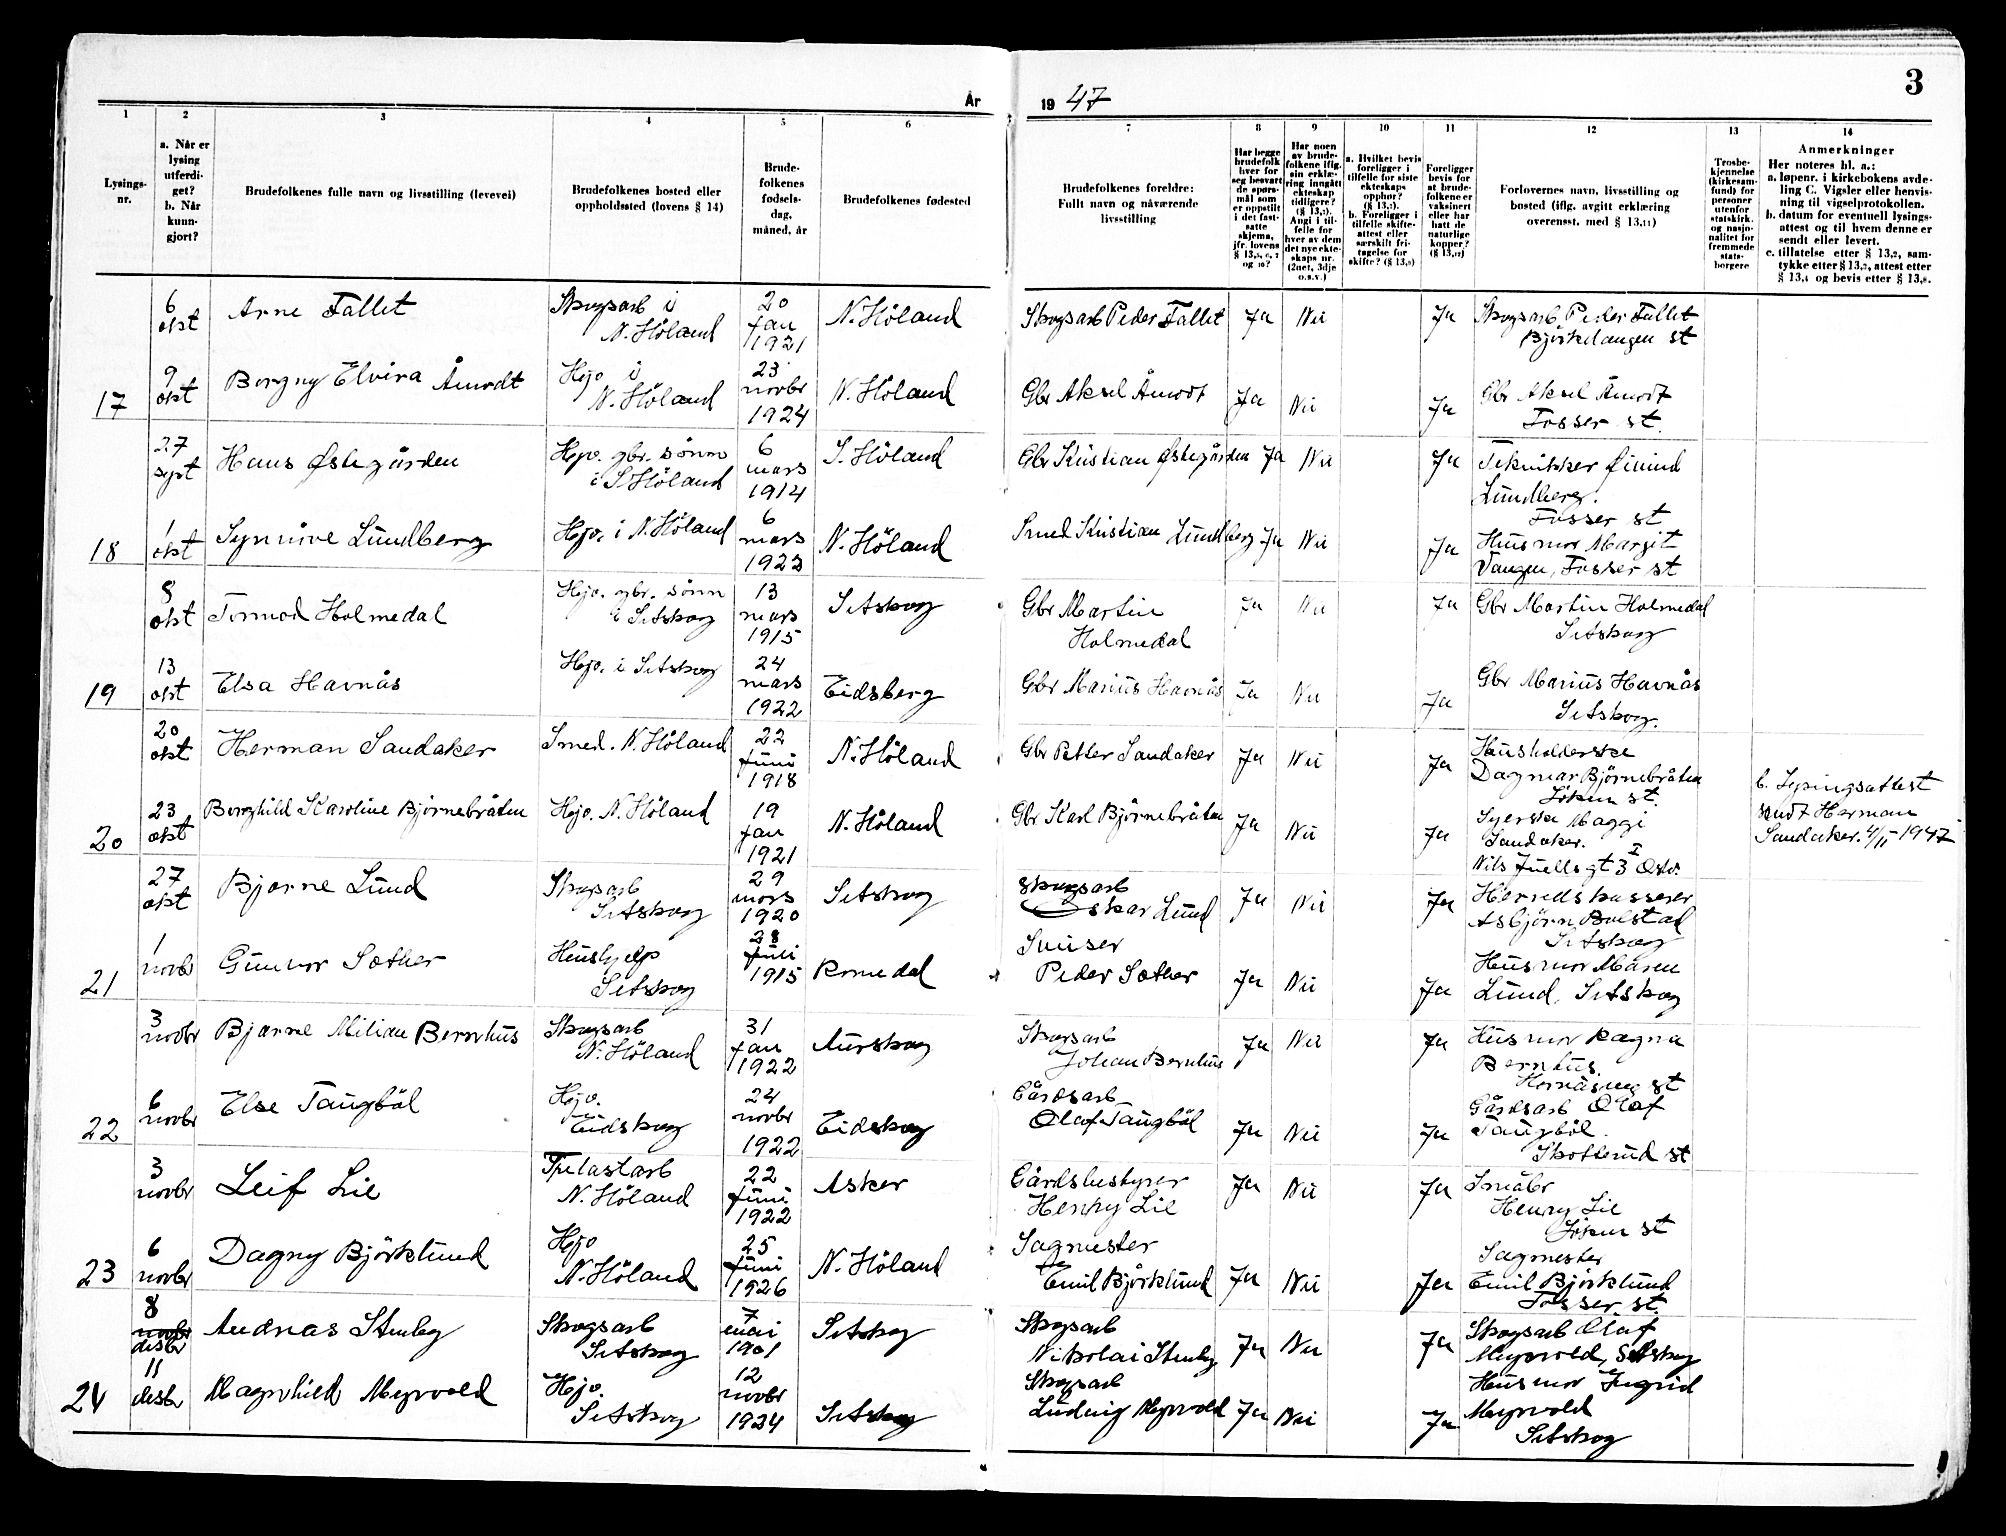 3
År
19 47
1
2
3
4
5
6
7
8
9
10
11
12
13
14
Lysings-
nr.
a. Når er
lysing
utferdi-
get?
b. Når
kunn-
gjort?
Brudefolkenes fulle navn og livsstilling (levevei)
Brudefolkenes bosted eller
oppholdssted (lovens § 14)
Brude-
folkenes
fødsels-
dag,
måned, år
Brudefolkenes fødested
Brudefolkenes foreldre:
Fullt navn og nåværende
livsstilling
Har begge
brudefolk
hver for
seg besvart
de spørs-
mål som
er oppstilt
i det fast-
satte
skjema,
jfr. lovens
Har noen
av brude-
folkene iflg.
sin erklæ-
ring inngått
ekteskap
tidligere?
Angi i til-
felle for
hver av dem
det nye ekte-
skaps nr.
(2net, 3dje
o.s.v.)
a. Hvilket bevis
foreligger i
tilfelle for siste
ekteskaps
opphør?
b. Foreligger i
tilfelle skifte-
attest eller
særskilt fri-
tagelse for
skifte?
Foreligger
bevis for
at brude-
folkene er
vaksinert
eller har
hatt de
naturlige
kopper?
Forlovernes navn, livsstilling og
bosted (iflg. avgitt erklæring
overensst. med § 13,11)
Trosbe-
kjennelse
(kirkesam-
fund) for
personer
utenfor
statskirk.
og nasjo-
nalitet for
fremmede
stats-
borgere
Anmerkninger
Her noteres bl. a.:
a. løpenr. i kirkebokens avde-
ling C. Vigsler eller henvis-
ning til vigselprotokollen.
b. datum for eventuell lysings-
attest og til hvem denne er
sendt eller levert.
c. tillatelse etter § 13,2, sam-
tykke etter § 13,3, attest etter
§ 13,4 og bevis etter § 13,8.
6
okt
Arne Fallet
Skogsarb i
N. Höland
20
Jan
1921
N. Höland
Skogsarb Peder Fallet
Ja
Nei
Ja
Skogsarb Peder Fallet
Björkelangen st
17
9
okt
Borgny Elvira Åmodt
Hjo i
N. Höland
23
novbr
1924
N. Höland
Gbr Aksel Åmodt
Ja
Nei
Ja
Gbr Aksel Åmodt
Fosser st.
27
sept
Hans Østegården
Hjv. gbr. sønn
i S. Höland
6
mars
1914
S. Höland
Gbr Kristian Østegården
Ja
Nei
Ja
Teknikker Øivind
Lundberg.
Fosser st
18
1
okt
Synnøve Lundberg
Hjv. i N. Höland
6
mars
1923
N. Höland
Smed Kristian Lundberg
Ja
Nei
Ja
Husmor Margit
Vangen, Fosser st
8
okt
Tormod Holmedal
Hjv. gbr. sønn
i Setskog
13
mars
1915
Setskog
Gbr Martin
Holmedal
Ja
Nei
Ja
Gbr Martin Holmedal
Setskog
19
13
okt
Elsa Havnås
Hjv. i Setskog
24
mars
1922
Eidsberg
Gbr Marius Havnås
Ja
Nei
Ja
Gbr Marius Havnås
Setskog.
20
okt
Herman Sandaker
Smed. N. Höland
22
Juni
1918
N. Höland
Gbr Petter Sandaker
Ja
Nei
Ja
Husholderske
Dagmar Bjørnebråten
Löken st.
20
23
okt
Borghild Karoline Bjørnebråten
Hjv. N. Höland
19
Jan
1921
N. Höland
Gbr Karl Bjørnebråten
Ja
Nei
Ja
Syerske Maggi
Sandaker.
Nils Juells gt 3 I Oslo.
b. Lysingsattest
sendt Herman
Sandaker. 4/11-1947
27
okt
Bjarne Lund
Skogsarb
Setskog
29
mars
1920
Setskog
Skogsarb
Oskar Lund
Ja
Nei
Ja
Herredskasserer
Asbjörn Bolstad
Setskog
21
1
novbr
Gunvor Sæther
Hushjelp
Setskog
28
Juli
1915
Romedal
Snuser
Peder Sæther
Ja
Nei
Ja
Husmor Maren
Lund, Setskog
3
novbr
Bjarne Milian Bernhus
Skogsarb
N. Höland
31
Jan
1922
Aurskog
Skogsarb
Johan Bernhus
Ja
Nei
Ja
Husmor Ragna
Bernhus.
Hornåseng st
22
6
novbr
Else Taugböl
Hjv.
Eidskog
24
novbr
1922
Eidskog
Gårdsarb
Olaf Taugböl
Ja
Nei
Ja
Gårdsarb Olaf
Taugböl.
Skotterud st
3
novbr
Leif Lie
N. Höland
22
Juni
1922
Asker
Gårdsbestyrer
Henry Lie
Ja
Nei
Ja
Småbr
Henry Lie
Löken st
23
6
novbr
Dagny Björklund
Hjv
N. Höland
25
Juni
1926
N. Höland
Sagmester
Emil Björklund
Ja
Nei
Ja
Sagmester
Emil Björklund
Fosser. st.
8
novbr
desbr
Andreas Stenby
Skogsarb
Setskog
7
mai
1901
Setskog
Skogsarb
Nikolai Stenby
Ja
Nei
Ja
Skogsarb Olaf
Myrvold, Setskog
24
11
desbr
Magnhild Myrvold
Hjv.
Setskog
12
novbr
1924
Setskog
Skogsarb
Ludvig Myrvold
Ja
Nei
Ja
Husmor Ingrid
Myrvold
Setskog